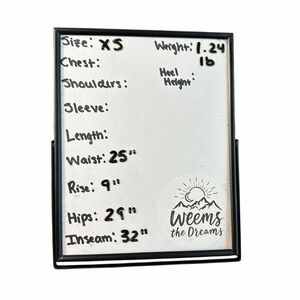 Size: XS Weight: 1.24
lb
Chest:
Heel
Shoulders: Height:
Sleeve:
Length:
Waist: 25"
Rise: 9"
Hips: 29"
Inseam: 32"
Weems
the Dreams